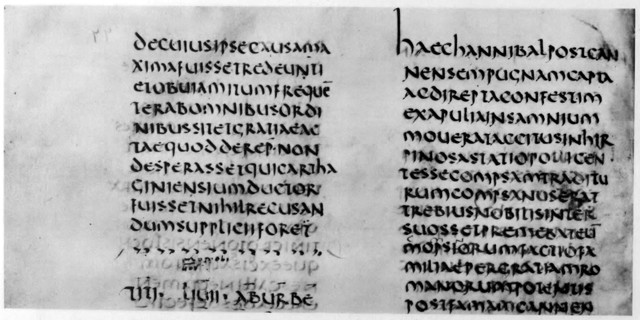 decuiusipsecausama
ximafuissetredeunti
etobuiamitumfreque̅
terabomnibusordi
nibussitetgratiaeac
taequodderep·non
desperassetquicartha
giniensiumductor
fuissetnihilrecusan
dumsuppliciiforet
titi·liuii·aburbe
haechannibalpostcan
nensempugnamcapta
acdireptaconfestim
exapuliainsamnium
moverataccitusinhir
pinosastatiopollicen
tessecompsamtraditu
rumcompsanuserat
trebiusnobilisinter
suossetpremebateu̅
mopsiorumfactiofa
miliaepergratiamro
manorumpotentis
postfamamcannen